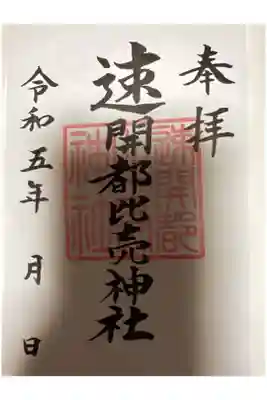 奉拝
速開都比売神社
令和五年 月 日